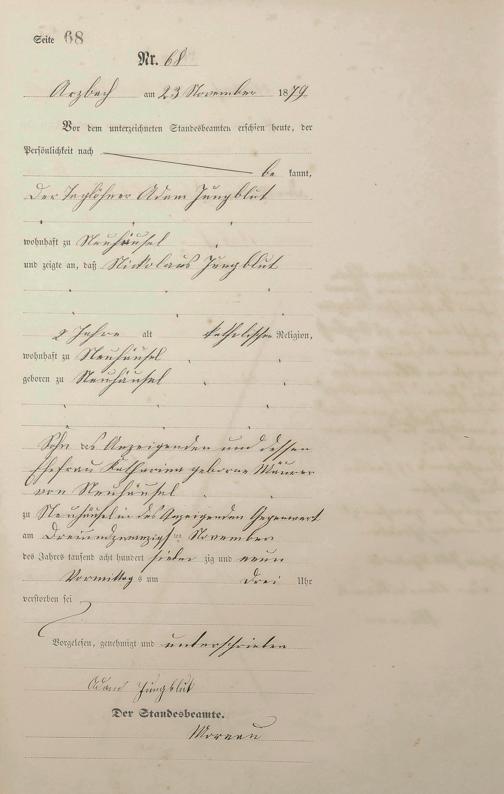 Seite 68
Nr. 68
Arzbach am 23 November 1879
Vor dem unterzeichneten Standesbeamten erschien heute, der
Persönlichkeit nach
be kannt,
der Taglöhner Adam Jungblut
wohnhaft zu Neuhäusel
und zeigte an, daß Nickolaus Jungblut
2 Jahre alt katholischer Religion,
wohnhaft zu Neuhäusel
geboren zu Neuhäusel
Sohn des Anzeigenden und dessen
Ehefrau Katharina geborne Maurer
von Neuhäusel
zu Neuhäusel in des Anzeigenden Gegenwart
am Dreiundzwanzigsten November
des Jahrs tausend acht hundert siebenzig und neun
Vormittags um drei Uhr
verstorben sei
Vorgelesen, genehmigt und unterschrieben
Adam Jungblut
Der Standesbeamte.
Moreau